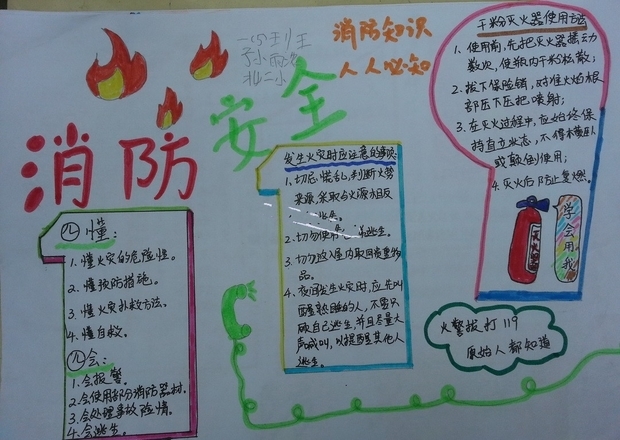 消防安全
消防知识
人人必知
四懂:
1.懂火灾的危险性。
2.懂预防措施。
3.懂火灾扑救方法。
4.懂自救。
四会:
1.会报警。
2.会使用部分消防器材。
3.会处理事故险情。
4.会逃生。
发生火灾时应注意的事项:
1.切忌慌乱,判断火势
来源,采取与火源相反
逃生。
2.切勿使用 逃生。
3.切勿返入屋内取回贵重物
品。
4.夜间发生火灾时,应先叫
醒熟睡的人,不要只
顾自己逃生,并且尽量大
声喊叫,以提醒其他人
逃生。
干粉灭火器使用方法
1.使用前,先把灭火器摇动
数次,使瓶内干粉松散;
2.拔下保险销,对准火焰根
部压下压把喷射;
3.在灭火过程中,应始终保
持直立状态,不得横卧
或颠倒使用;
4.灭火后防止复燃。
灭火器
学会用我
火警拨打119
原始人都知道